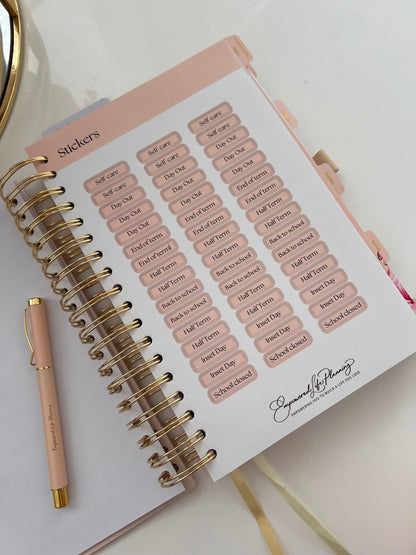 Stickers
Self care
Self care
Day Out
Day Out
Day Out
End of term
End of term
Half Term
Half Term
Back to school
Back to school
Half Term
Half Term
Inset Day
Inset Day
School closed
Self care
Self care
Day Out
Day Out
Day Out
End of term
End of term
Half Term
Half Term
Back to school
Back to school
Half Term
Half Term
Inset Day
Inset Day
School closed
Self care
Self care
Day Out
Day Out
Day Out
End of term
End of term
Half Term
Half Term
Back to school
Back to school
Half Term
Half Term
Inset Day
Inset Day
School closed
Empowered Life Planning
EMPOWERING YOU TO BUILD A LIFE YOU LOVE
Empowered Life Planning